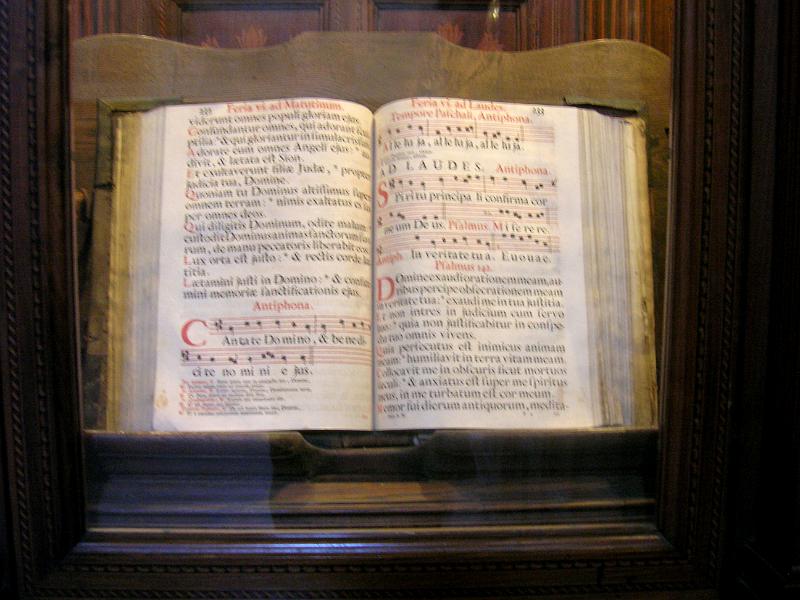 Feria vi. ad Matutinum.
viderunt omnes populi gloriam ejus.
Confundantur omnes, qui adorant
ptilia: * & qui gloriantur in simulacris
Adorate eum omnes Angeli ejus: *
divit, & lætata eſt Sion.
Et exultaverunt filiæ Judæ, * propter
judicia tua, Domine.
Quoniam tu Dominus altiſſimus ſuper
omnem terram: * nimis exaltatus es
per omnes deos.
Qui diligitis Dominum, odite malum:
cuſtodit Dominus animas ſanctorum
rum, de manu peccatoris liberabit eos.
Lux orta eſt juſto: * & rectis corde
titia.
Lætamini juſti in Domino: * &
mini memoriæ ſanctificationis ejus.
Antiphona.
CAntate Domino, & benedi
cite no mi ni e jus.
Feria vi. ad Laudes. 233
Tempore Paſchali, Antiphona.
Al le lu ja, al le lu ja, al le lu ja.
AD LAUDES. Antiphona.
SPiritu principa li confirma cor
me um De us. Pſalmus. Mi ſe re re.
Antiph. In veritate tua. Euouae.
Pſalmus 142.
DOmine exaudi orationem meam, au-
ribus percipe obſecrationem meam
in veritate tua: * exaudi me in tua juſtitia.
Et non intres in judicium cum ſervo
tuo: * quia non juſtificabitur in conſpe-
ctu tuo omnis vivens.
Quia perſecutus eſt inimicus animam
meam: * humiliavit in terra vitam meam.
Collocavit me in obſcuris ſicut mortuos
ſæculi: * & anxiatus eſt ſuper me ſpiritus
meus, in me turbatum eſt cor meum.
Memor fui dierum antiquorum, medita-